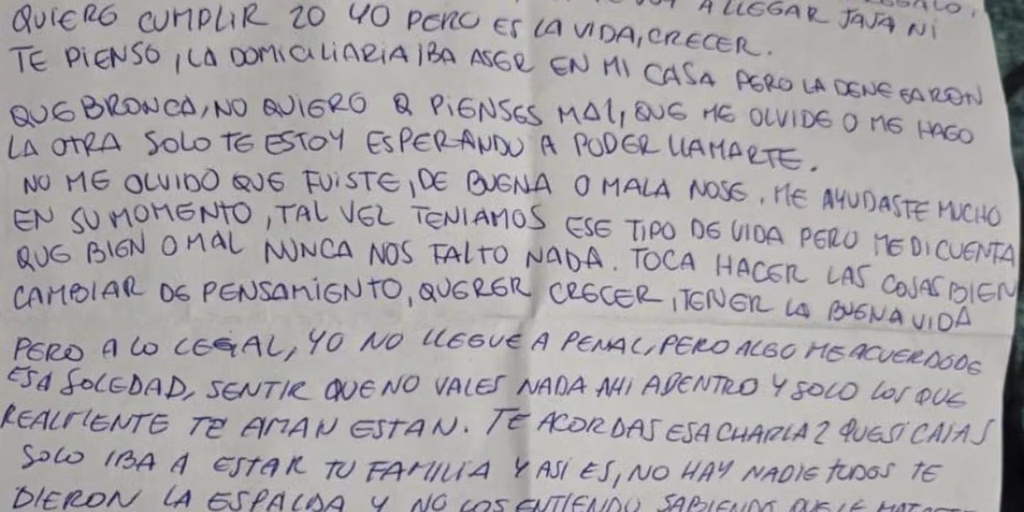 A LLEGAR JAJA NI
QUIERO CUMPLIR 20 YO PERO ES LA VIDA, CRECER.
TE PIENSO, LA DOMICILIARIA IBA ASER EN MI CASA PERO LA DENEGARON
QUE BRONCA, NO QUIERO Q PIENSES MAL, QUE ME OLVIDE O ME HAGO
LA OTRA SOLO TE ESTOY ESPERANDO A PODER LLAMARTE.
NO ME OLVIDO QUE FUISTE, DE BUENA O MALA NOSE. ME AYUDASTE MUCHO
EN SU MOMENTO, TAL VEZ TENIAMOS ESE TIPO DE VIDA PERO ME DI CUENTA
QUE BIEN O MAL NUNCA NOS FALTO NADA. TOCA HACER LAS COSAS BIEN
CAMBIAR DE PENSAMIENTO, QUERER CRECER, TENER LA BUENA VIDA
PERO A LO LEGAL, YO NO LLEGUE A PENAL, PERO ALGO ME ACUERDO DE
ESA SOLEDAD, SENTIR QUE NO VALES NADA AHI ADENTRO Y SOLO LOS QUE
REALMENTE TE AMAN ESTAN. TE ACORDAS ESA CHARLA? QUE SI CAIAS
SOLO IBA A ESTAR TU FAMILIA Y ASI ES, NO HAY NADIE TODOS TE
DIERON LA ESPALDA Y NO LOS ENTIENDO SABIENDO QUE LE